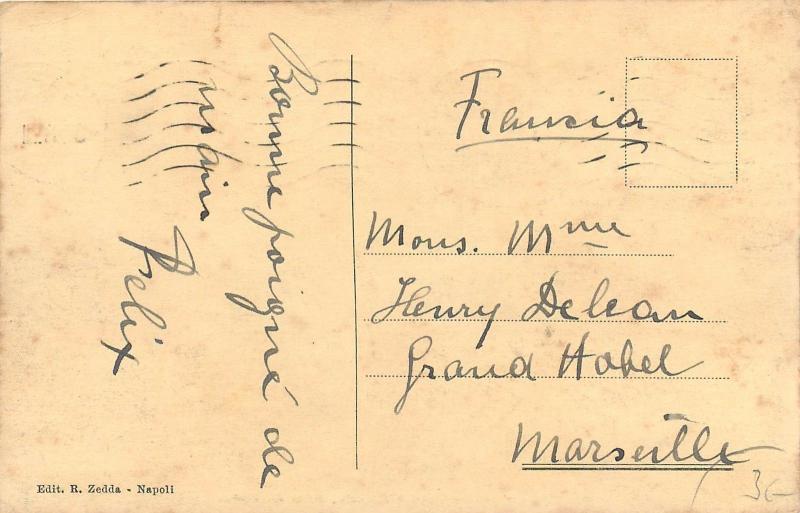 Bonne poigné de
main
Felix
Francia
Mons. Mme
Henry Delean
Grand Hotel
Marseille
Edit. R. Zedda - Napoli